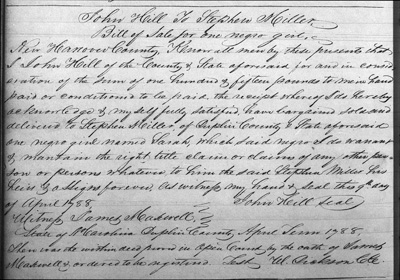 John Hill To Stephen Miller
Bill of Sale for one negro girl,
New Hanover County, Know all men by these presents that
I John Hill of the County & State aforesaid for and in consid
eration of the sum of one hundred & fifteen pounds to me in hand
paid or conditioned to be paid the receipt whereof I do hereby
acknowledge & myself fully satisfied, have bargained sold and
delivered to Stephen Miller of Duplin County & State aforesaid
one negro girl named Sarah, which said negro I do warrant
& maintain the right title claim or claims of any other per
son or persons whatever to him the said Stephen Miller his
heirs & assigns forever, As witness my hand & seal this 9th day
of April 1788. John Hill Seal
Witness James Maxwell
State of N Carolina Duplin County April Term 1788,
Then was the within deed proved in Open Court by the oath of James
Maxwell & ordered to be registered. Test W. Dickson Clk.